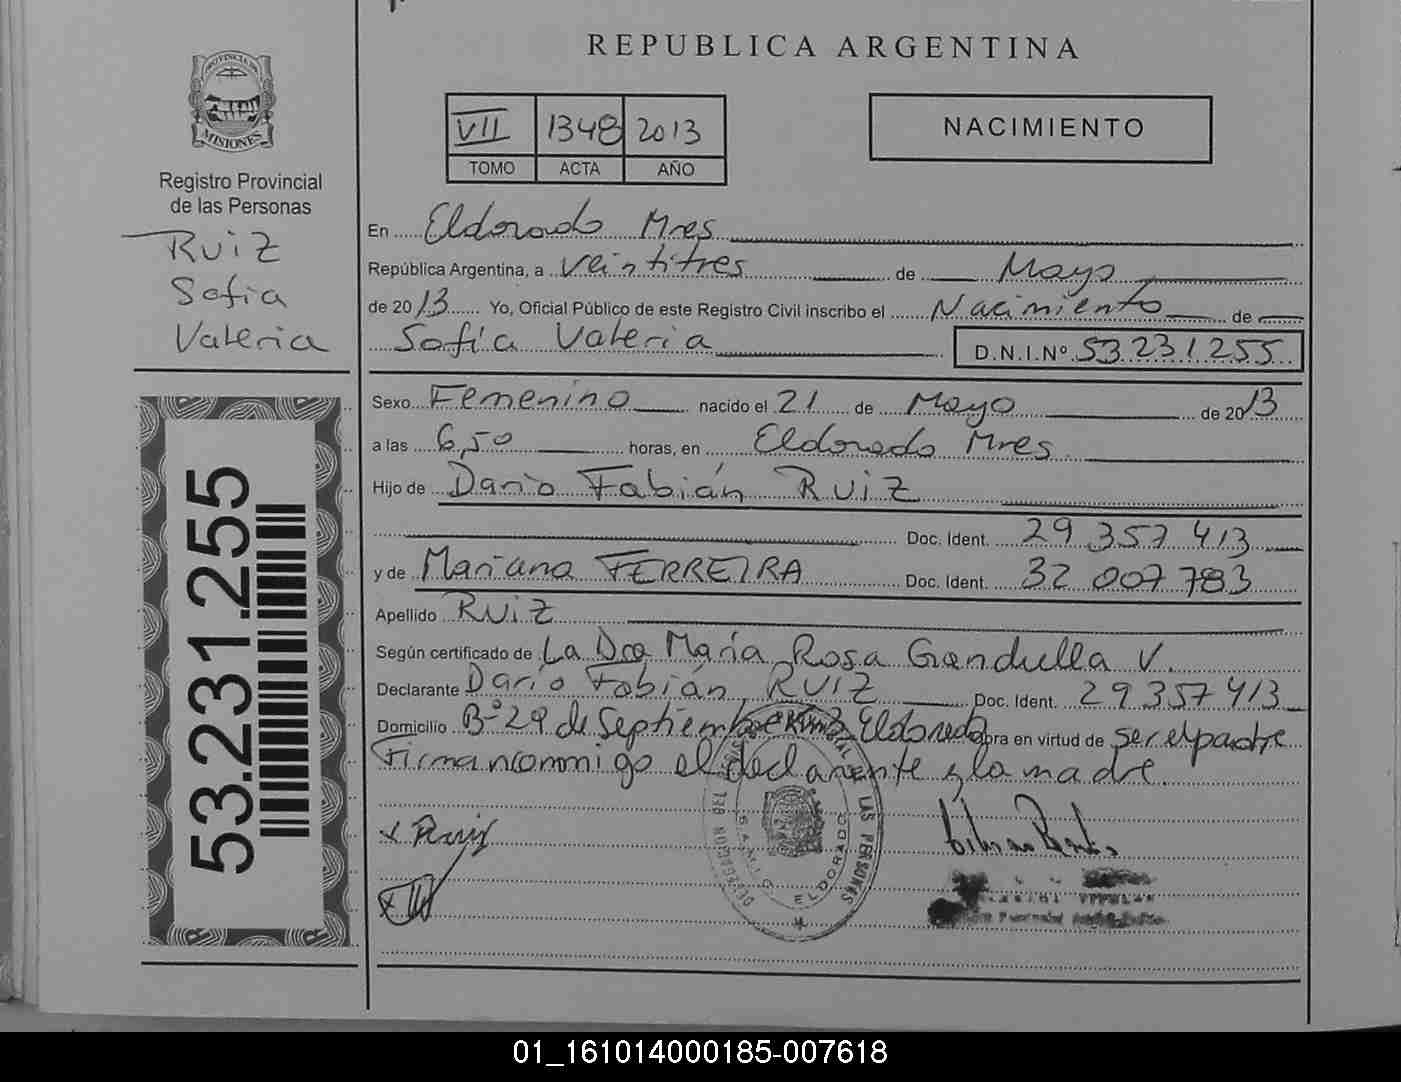 REPUBLICA ARGENTINA
PROVINCIA DE
MISIONES
Registro Provincial
de las Personas
RUIZ
Sofia
Valeria
VII 1348 2013
TOMO ACTA AÑO
NACIMIENTO
En Eldorado Mnes
República Argentina, a veintitres de Mayo
de 2013 Yo, Oficial Público de este Registro Civil inscribo el Nacimiento de
Sofía Valeria D.N.I.Nº 53.231.255
Sexo Femenino nacido el 21 de Mayo de 2013
a las 6,50 horas, en Eldorado Mnes
Hijo de Darío Fabián RUIZ
Doc. Ident. 29.357.413
y de Mariana FERREIRA Doc. Ident. 32.007.783
Apellido RUIZ
Según certificado de La Dra María Rosa Gandulla V.
Declarante Darío Fabián RUIZ Doc. Ident. 29357413
Domicilio Bº 29 de Septiembre Km 3 Eldorado obra en virtud de ser el padre
Firman conmigo el declarante y la madre
53.231.255
X Ruiz
ELDORADO
LAS PERSONAS
01_161014000185-007618